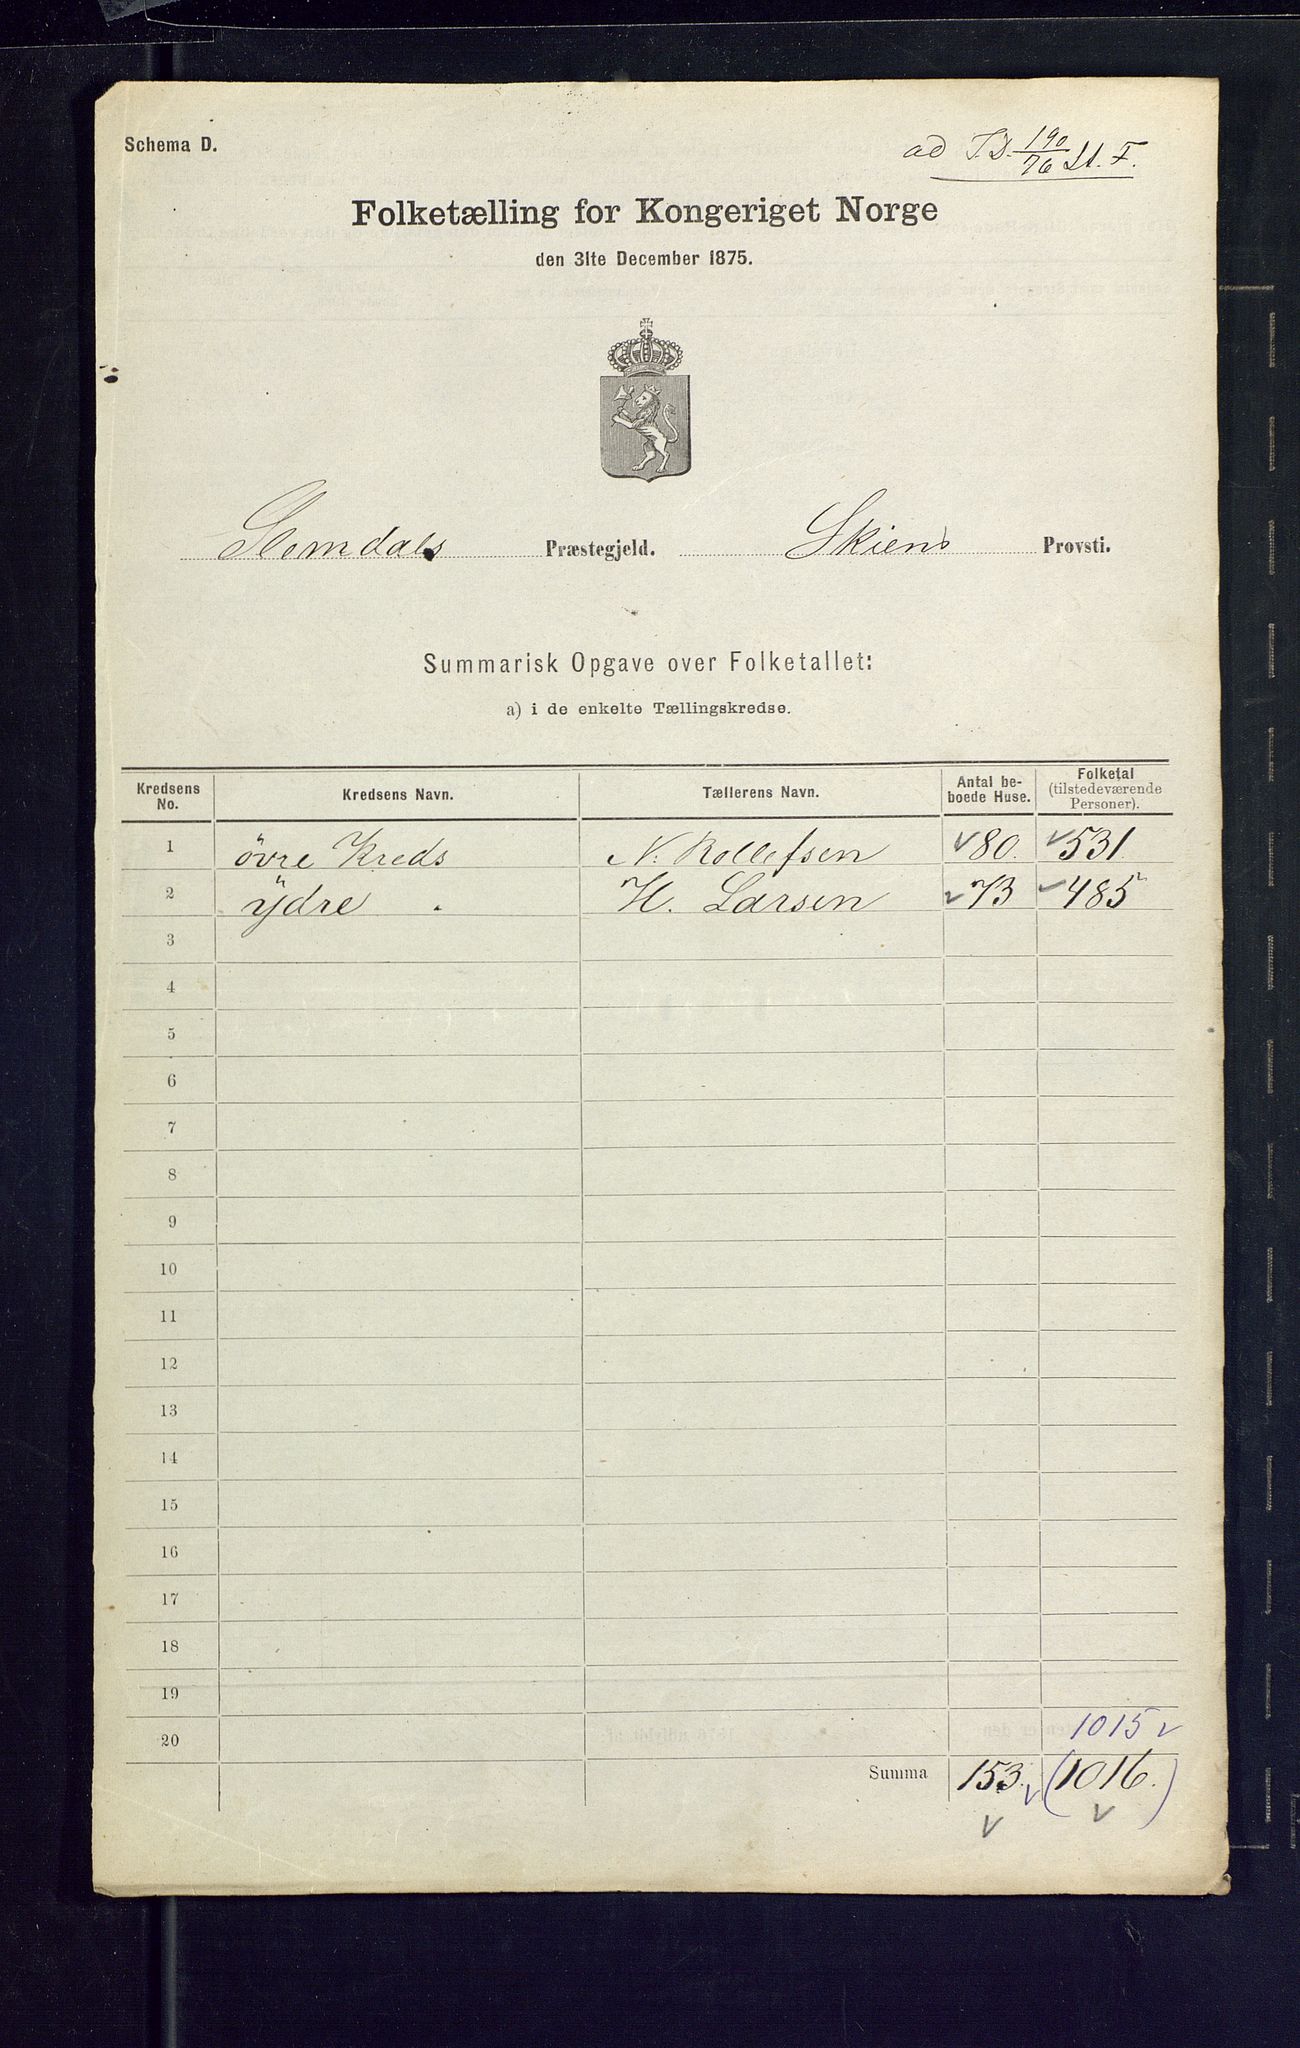 Schema D.
ad J.D. 190/76 Lt. F.
Folketælling for Kongeriget Norge
den 31te December 1875.
Slemdals Præstegjeld. Skiens Provsti.
Summarisk Opgave over Folketallet:
a) i de enkelte Tællingskredse.
Kredsens No. Kredsens Navn. Tællerens Navn. Antal beboede Huse. Folketal (tilstedeværende Personer).
1 övre Kreds N. Rollefsen 80. 531
2 ydre . H. Larsen 73 485
3
4
5
6
7
8
9
10
11
12
13
14
15
16
17
18
19
20 1015
Summa 153. (1016.)